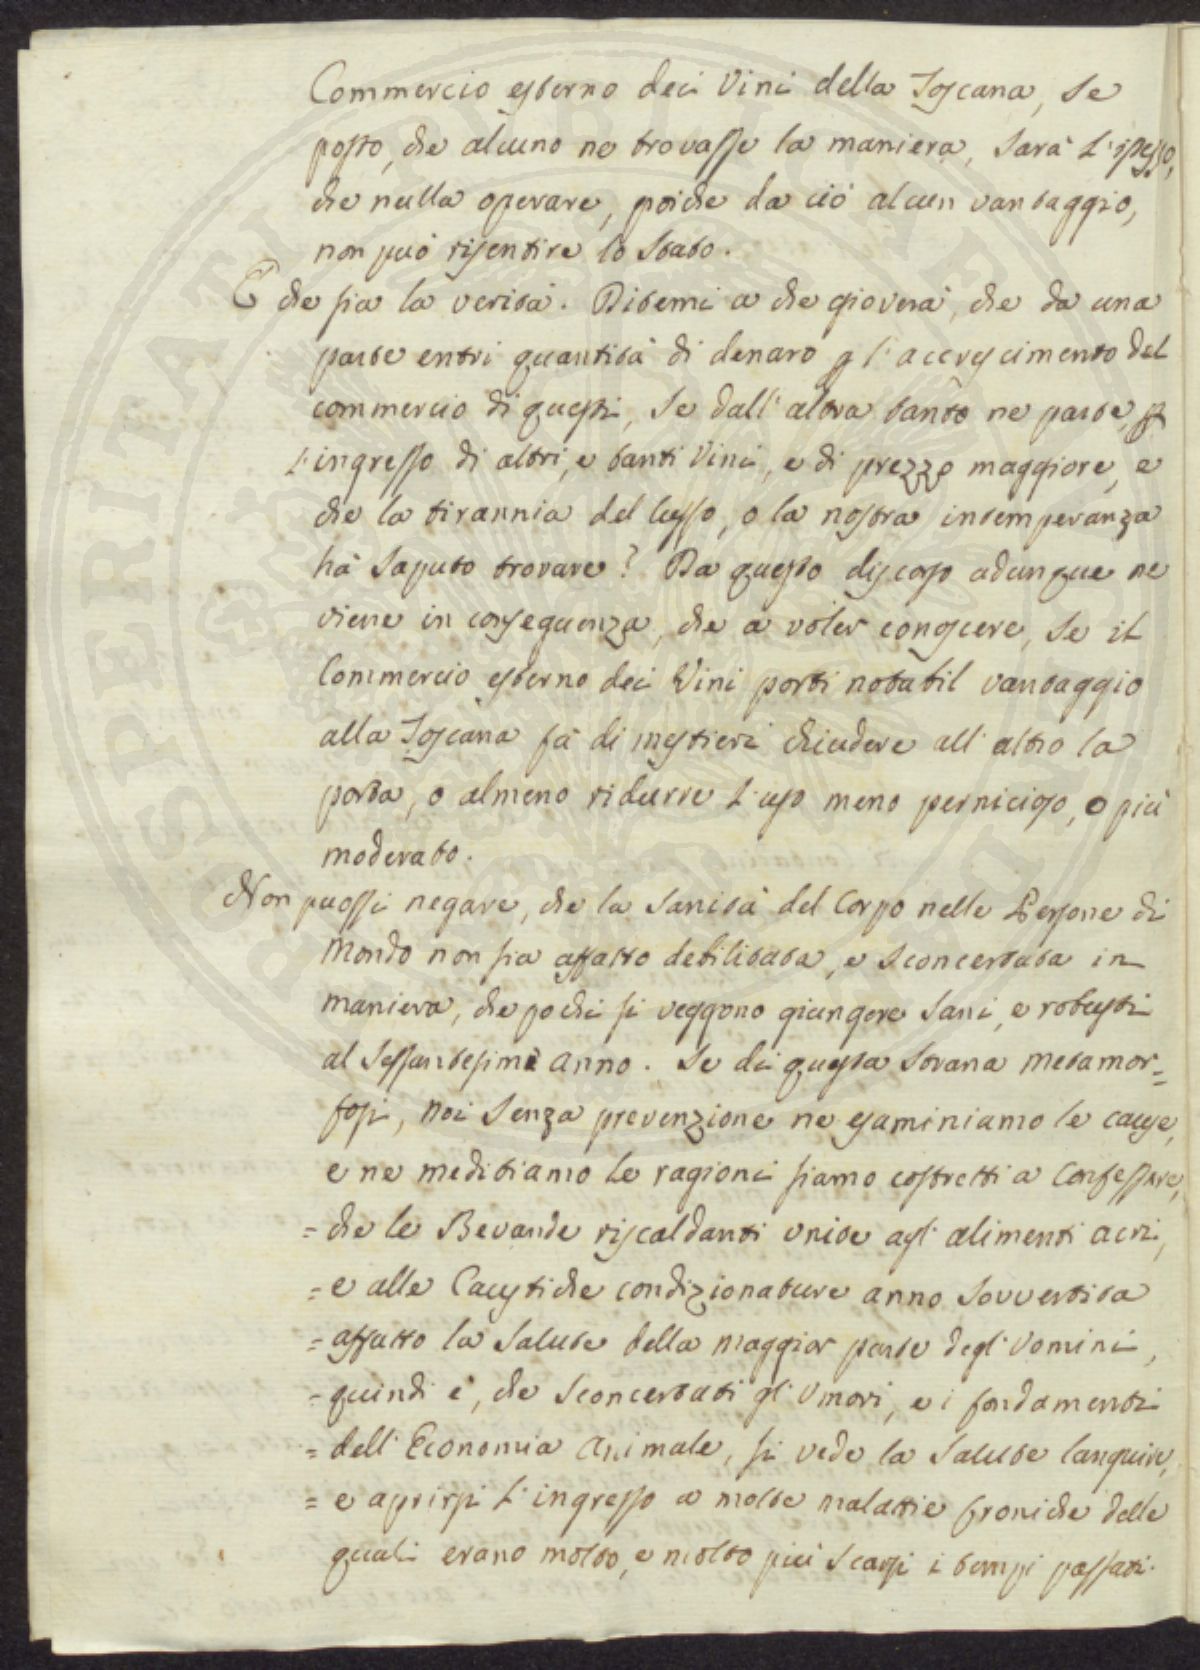 Commercio esterno dei Vini della Toscana, se
posto, che alcuno ne trovasse la maniera, sarà l'istesso,
che nulla operare, poiche da ciò alcun vantaggio,
non può risentire lo Stato.
E che sia la verità. Ditemi a che gioverà, che da una
parte entri quantità di denaro p l'accrescimento del
commercio di questi, se dall'altra tanto ne parte, p
l'ingresso di altri, e tanti Vini, e di prezzo maggiore, e
che la tirannia del lusso, o la nostra intemperanza
hà saputo trovare? Da questo discorso adunque ne
viene in conseguenza, che a voler conoscere, se il
Commercio esterno dei Vini porti notabil vantaggio
alla Toscana fà di mestieri chiudere all'altro la
porta, o almeno ridurre l'uso meno pernicioso, o più
moderato.
Non puossi negare, che la sanità del Corpo nelle Persone di
Mondo non sia affatto debilitata, e sconcertata in
maniera, che pochi si veggono giungere sani, e robusti
al sessantesimo anno. Se di questa strana metamor=
fosi, noi senza prevenzione ne esaminiamo le cause,
e ne meditiamo le ragioni siamo costretti a confessare,
= che le Bevande riscaldanti unite agl'alimenti acri,
= e alle Caustiche condizionature anno sovvertita
= affatto la salute della maggior parte degl'Uomini,
= quindi è, che sconcertati gl'Umori, e i fondamenti
= dell'Economia Animale, si vede la salute languire,
= e aprirsi l'ingresso a molte malattie croniche delle
quali erano molto, e molto più scarsi i tempi passati.